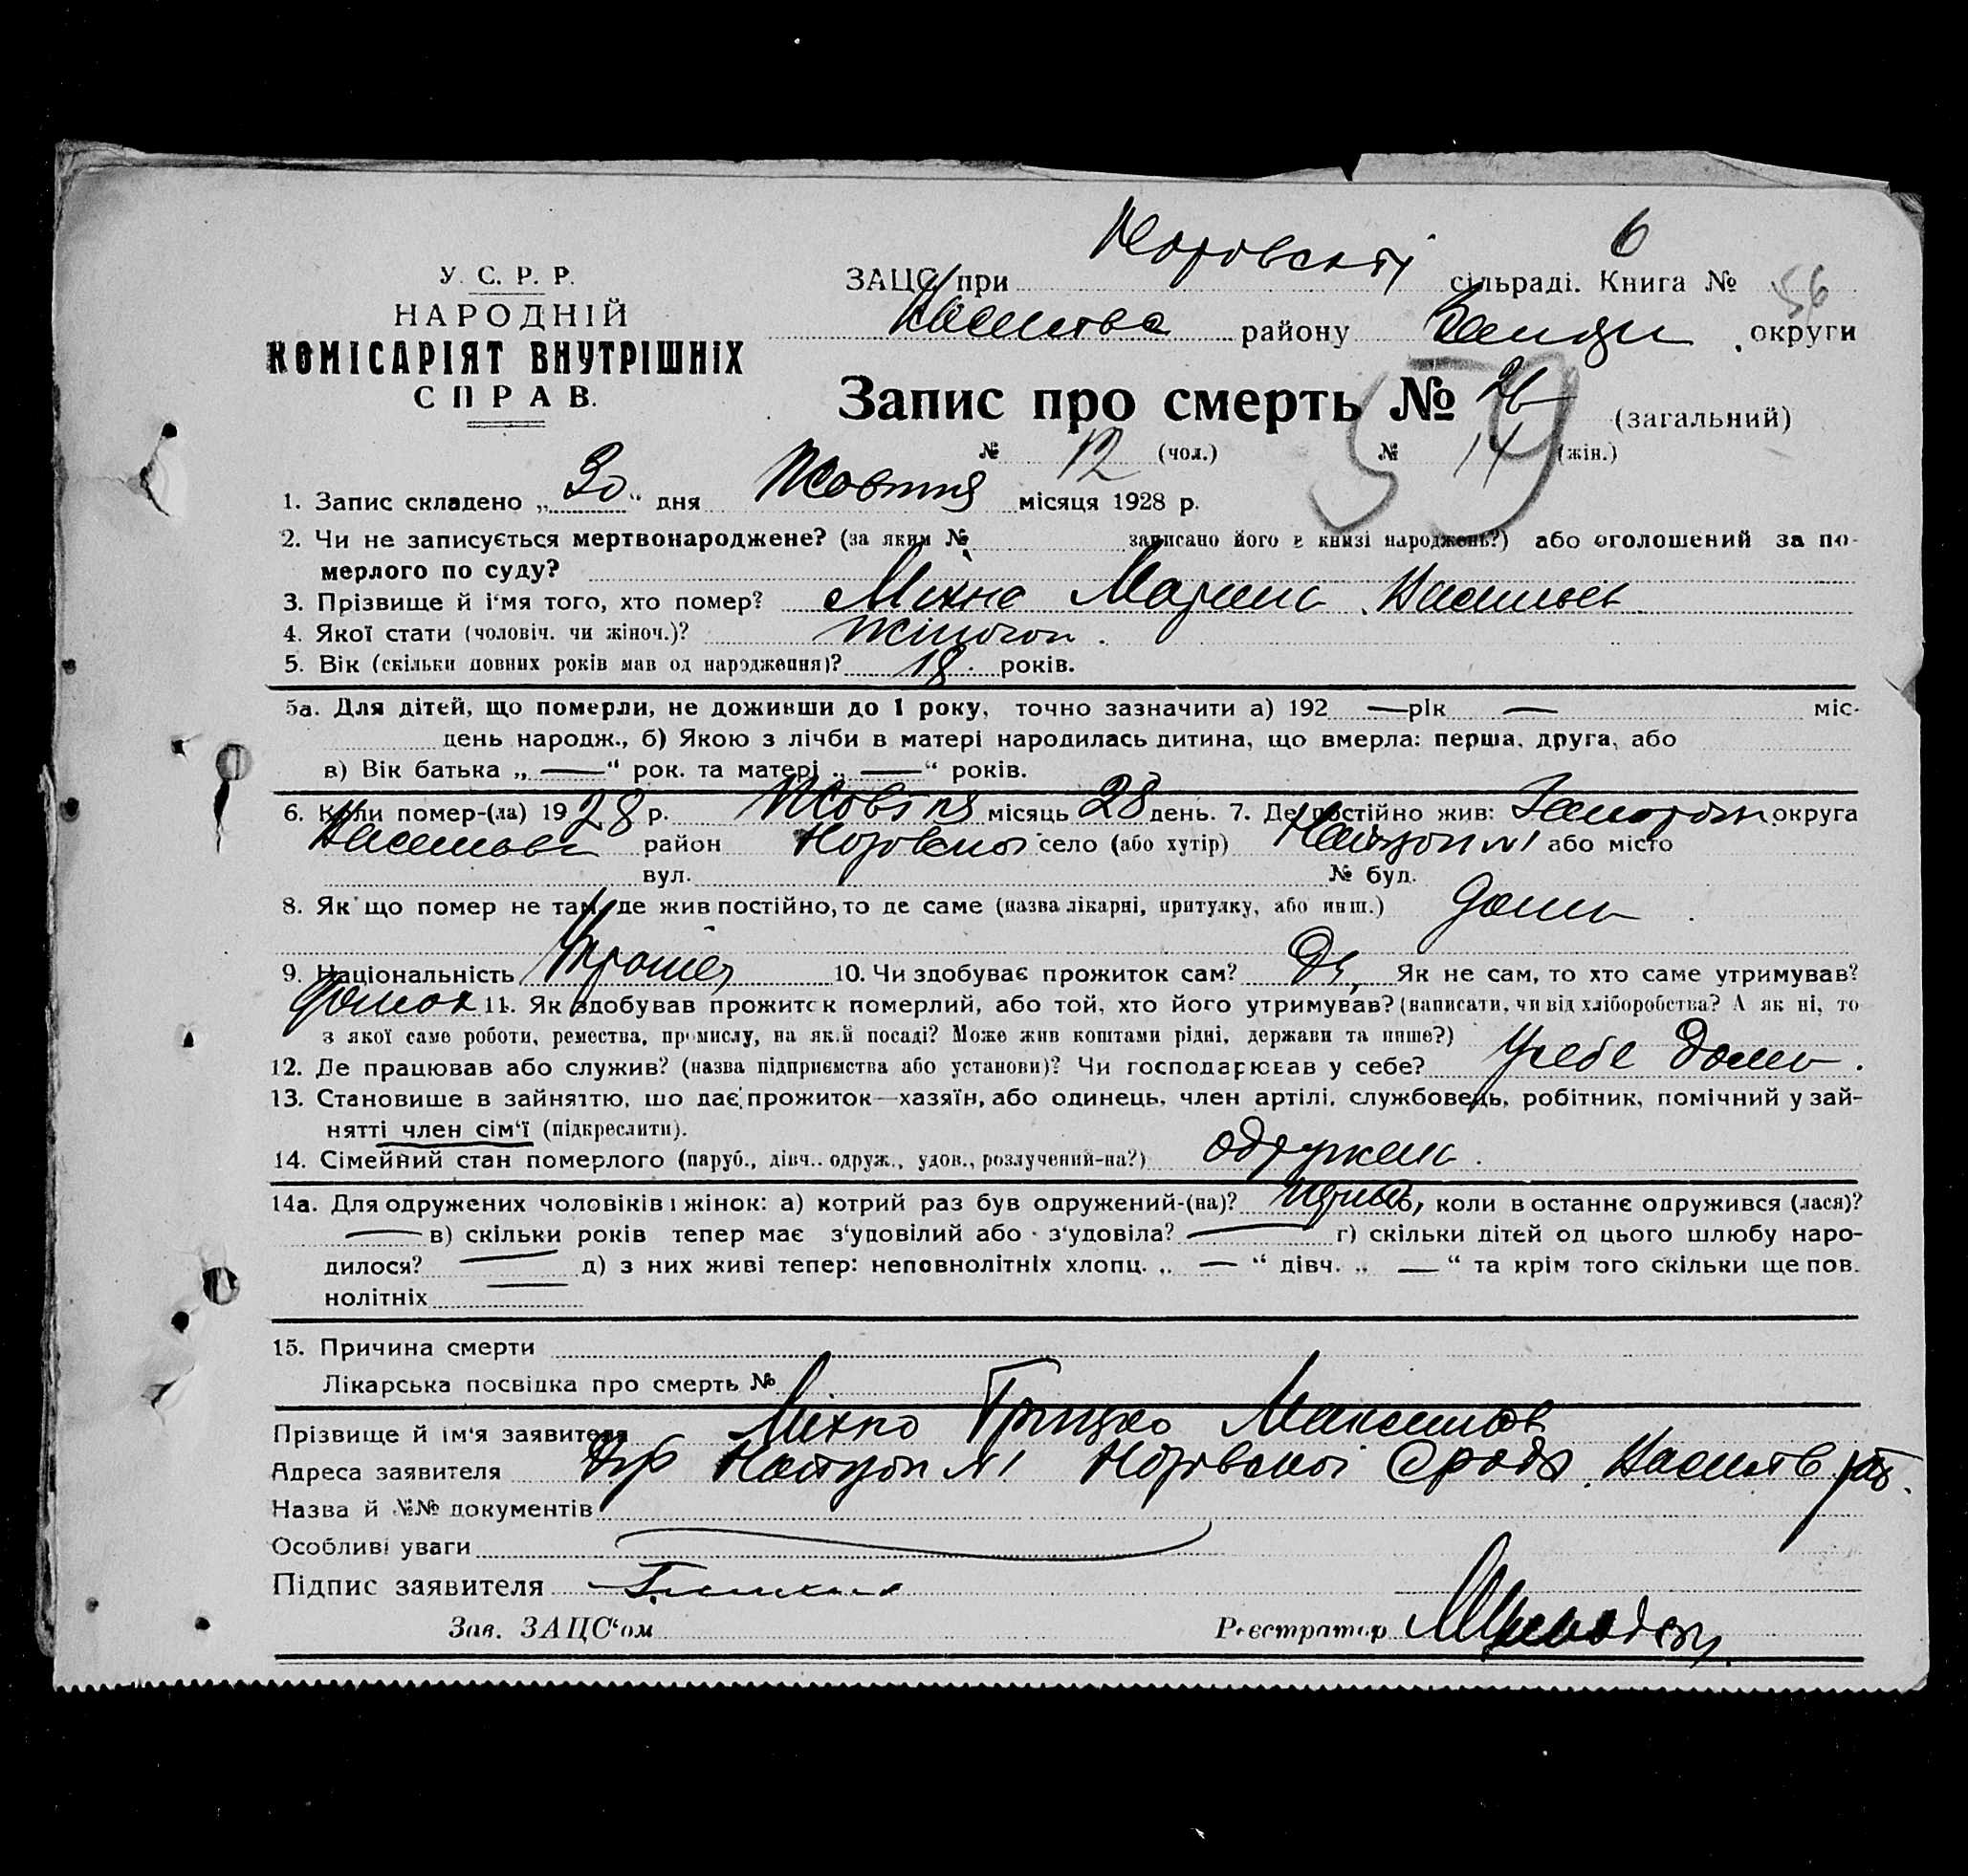 У. С. Р. Р.
НАРОДНІЙ
КОМІСАРІЯТ ВНУТРІШНІХ
СПРАВ.
ЗАЦС при сільраді. Книга № 6
56
району округи
Запис про смерть № 26 (загальний)
№ 12 (чол.) № 14 (жін.)
59
1. Запис складено „30“ дня Жовтня місяця 1928 р.
2. Чи не записується мертвонароджене? (за яким № записано його в книзі народжень?) або оголошений за по-
мерлого по суду?
3. Прізвище й і‘мя того, хто помер? Міхно
4. Якої стати (чоловіч. чи жіноч.)? жіночої.
5. Вік (скільки повних років мав од народження)? 18 років.
5а. Для дітей, що померли, не доживши до 1 року, точно зазначити а) 192 — рік — міс-
день народж., б) Якою з лічби в матері народилась дитина, що вмерла: перша, друга, або
в) Вік батька „ — “ рок. та матері „ — “ років.
6. Коли помер-(ла) 1928 р. Жовтня місяць 28 день. 7. Де постійно жив: округа
район село (або хутір) або місто
вул. № буд.
8. Як що помер не там, де жив постійно, то де саме (назва лікарні, притулку, або инш.) дома
9. Національність 10. Чи здобуває прожиток сам? Як не сам, то хто саме утримував?
11. Як здобував прожиток померлий, або той, хто його утримував? (написати, чи від хліборобства? А як ні, то
з якої саме роботи, ремества, промислу, на якій посаді? Може жив коштами рідні, держави та инше?)
12. Де працював або служив? (назва підприємства або установи)? Чи господарював у себе? у себе дома.
13. Становише в зайняттю, що дає прожиток—хазяїн, або одинець, член артілі, службовець, робітник, помічний у зай-
нятті член сім‘ї (підкреслити).
14. Сімейний стан померлого (паруб., дівч.. одруж., удов., розлучений-на?) одружена.
14а. Для одружених чоловіків і жінок: а) котрий раз був одружений-(на)? б, коли в останнє одружився (лася)?
— в) скільки років тепер має з‘удовілий або з‘удовіла? — г) скільки дітей од цього шлюбу наро-
дилося? — д) з них живі тепер: неповнолітніх хлопц. „ — “ дівч. „ — “ та крім того скільки ще пов.
нолітніх —
15. Причина смерти
Лікарська посвідка про смерть №
Прізвище й ім‘я заявителя Міхно Грицко Максимов
Адреса заявителя №1
Назва й №№ документів
Особливі уваги
Підпис заявителя
Зав. ЗАЦС‘ом Реєстратор